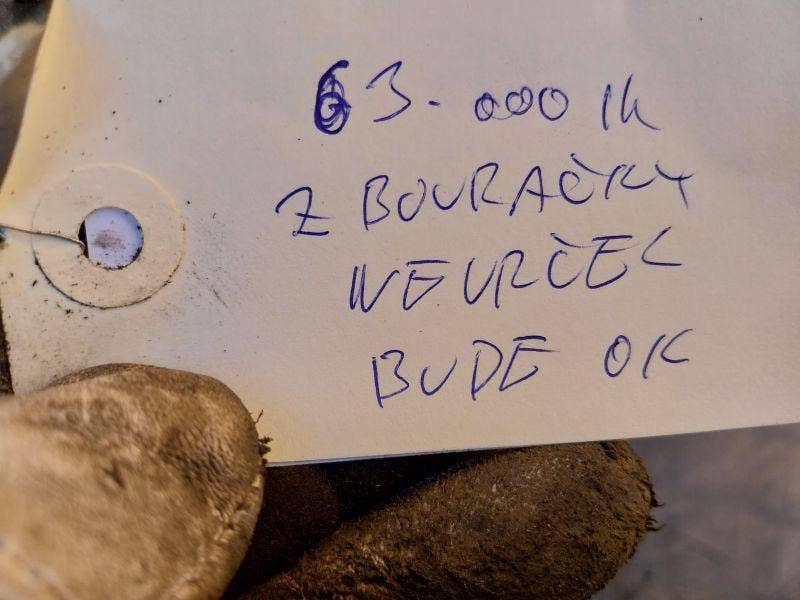 63.000 1k
Z BOURAČKY
NEVRČEL
BUDE OK